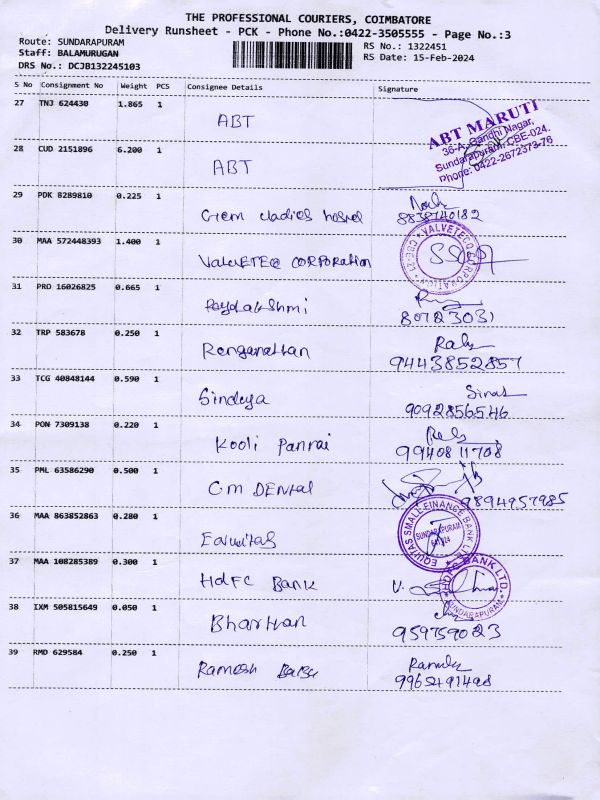 THE PROFESSIONAL COURIERS, COIMBATORE
Delivery Runsheet - PCK - Phone No.:0422-3505555 - Page No.:3
Route: SUNDARAPURAM
RS No.: 1322451
Staff: BALAMURUGAN
RS Date: 15-Feb-2024
DRS No.: DCJB132245103
S No Consignment No Weight PCS Consignee Details Signature
27 TNJ 624430 1.865 1 ABT
ABT MARUTI
36-A, Gandhi Nagar,
Sundarapuram, CBE-024.
Phone: 0422-2672373-76
28 CUD 2151896 6.200 1 ABT
29 PDK 8289810 0.225 1 Gem Ladies hostel
8838740182
30 MAA 572448393 1.400 1 ValvETEC CORPORATION
VALVETECO CORPORATION
31 PRO 16026825 0.665 1
80723031
32 TRP 583678 0.250 1 Renganathan
9443852857
33 TCG 40848144 0.590 1 Sindeya
9092856546
34 PON 7309138 0.220 1 Kooli Pannai
9940811708
35 PML 63586290 0.500 1 C.M DENTAL
9894957985
36 MAA 863852863 0.280 1 Equitas
EQUITAS SMALL FINANCE BANK LTD
SUNDARAPURAM
37 MAA 108285389 0.300 1 HDFC Bank
HDFC BANK LTD.
SUNDARAPURAM
38 IXM 505815649 0.050 1 Bharthan
959759023
39 RMD 629584 0.250 1 Ramesh Babu
9965491498